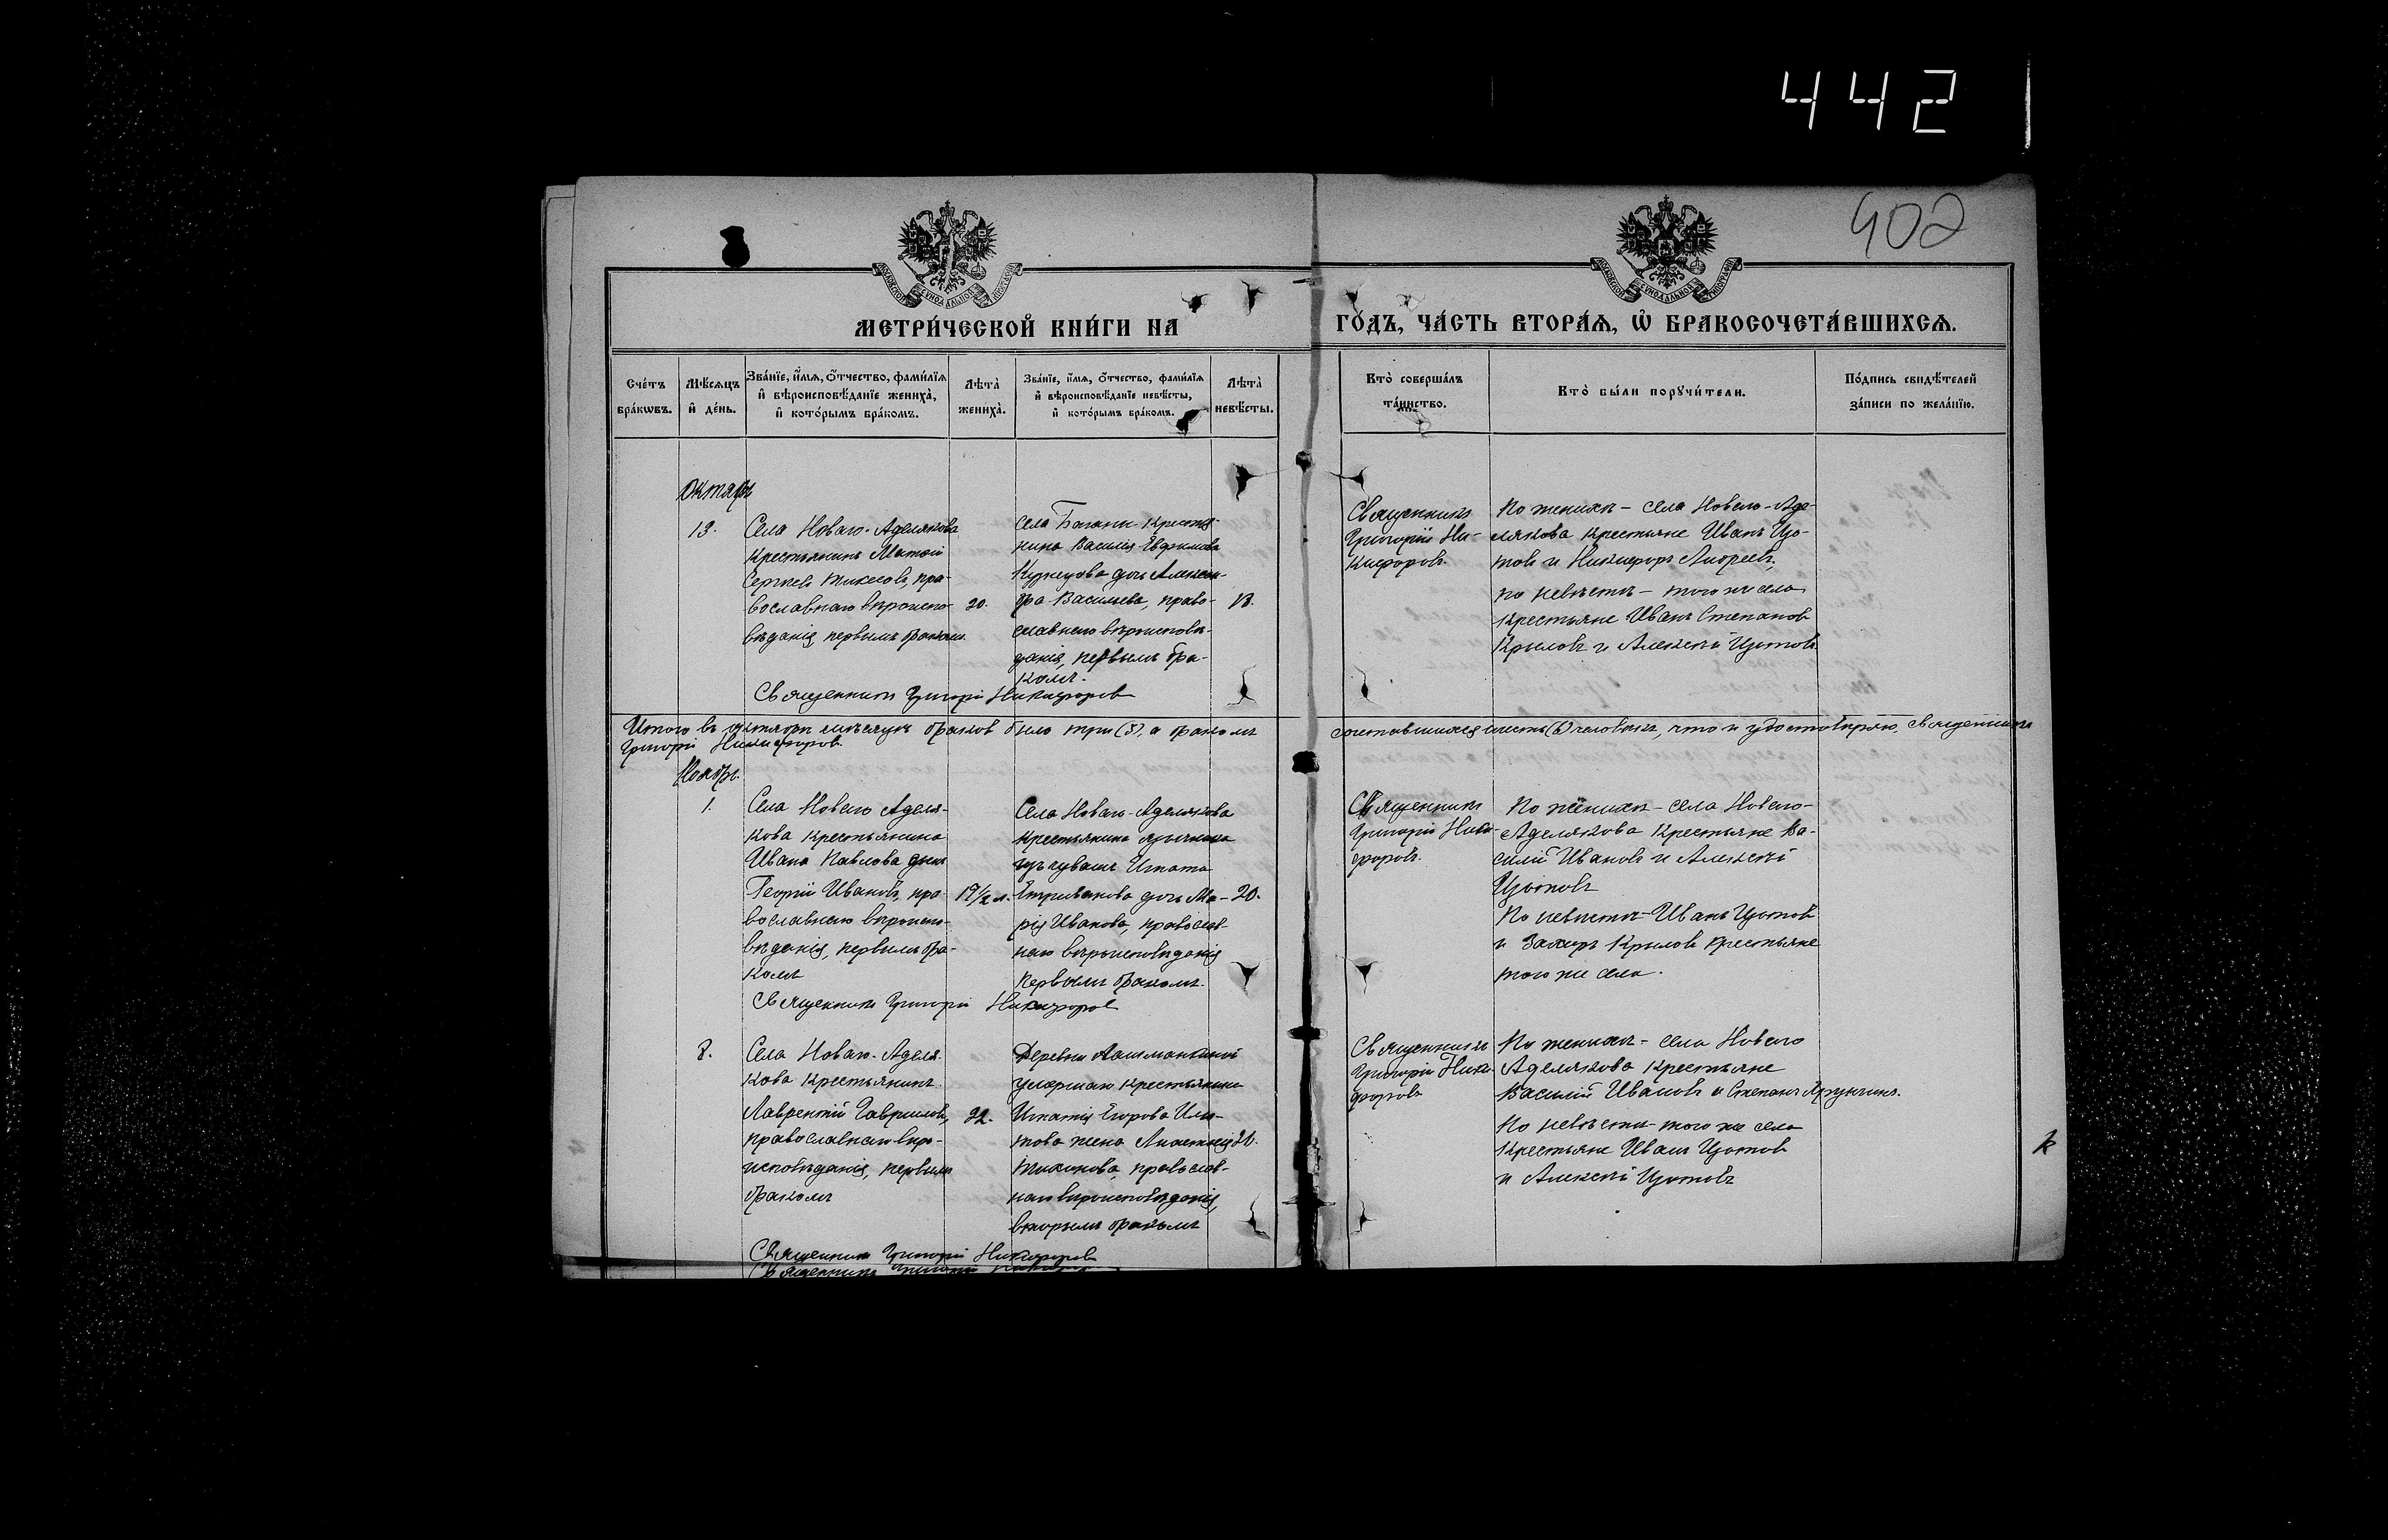 442
402
МЕТРИ́ЧЕСКОЙ КНИ́ГИ НА
ГО́ДЪ, ЧА́СТЬ ВТОРА́Я, Ѡ БРАКОСОЧЕТА́ВШИХСЯ.
Сче́тъ бра́кѡвъ.
Мѣ́сяцъ и де́нь.
Зва́нїе, и́мя, ѻ́тчество, фами́лїя
и вѣроисповѣ́данїе жениха̀,
и кото́рымъ бра́комъ.
Лѣта̀ жениха̀.
Зва́нїе, и́мя, ѻ́тчество, фами́лїя
и вѣроисповѣ́данїе невѣ́сты,
и кото́рымъ бра́комъ.
Лѣта̀ невѣ́сты.
Кто̀ соверша́лъ
та́инство.
Кто̀ бы́ли порꙋчи́тели.
По́дпись свидѣ́телей
за́писи по жела́нїю.
Октябрь
13.
Села Новаго-Аделякова
крестьянинъ Матвій
Сергѣевъ, пра-
вославнаго вѣроиспо-
вѣданія, первымъ бракомъ.
20.
Села крестья-
нина Василія Евфимова
Кузнецова дочь Алексан-
дра Васильева, право-
славнаго вѣроисповѣ-
данія, первымъ бра-
комъ.
18.
Священникъ
Григорій Ни-
кифоровъ.
По женихѣ – села Новаго-Аде-
лякова крестьяне Иванъ Изо-
товъ и Никифоръ Андреевъ,
по невѣстѣ – того же села
крестьяне Иванъ Степановъ
Крыловъ и Алексѣй Изотовъ
Священникъ Григорій Никифоровъ
Итого въ октябрѣ мѣсяцѣ браковъ было три (3), а бракомъ сочетавшихся шесть (6) человѣкъ, что и удостовѣряю, священникъ
Григорій Никифоровъ.
Ноябрь.
1.
Села Новаго Аделя-
кова крестьянина
Ивана Павлова сынъ
Георгій Ивановъ, пра-
вославнаго вѣроиспо-
вѣданія, первымъ бра-
комъ
19½ л.
Села Новаго-Аделякова
крестьянина язычника
изъ чувашъ Игната
дочь Ма-
рія Иванова, православ-
наго вѣроисповѣданія
первымъ бракомъ.
20.
Священникъ
Григорій Ники-
форовъ.
По женихѣ – села Новаго-
Аделякова крестьяне Ва-
силій Ивановъ и Алексѣй
Изотовъ
По невѣстѣ – Иванъ Изотовъ
и Захаръ Крыловъ крестьяне
того же села.
Священникъ Григорій Никифоровъ
8.
Села Новаго-Аделя-
кова крестьянинъ
Лаврентій Гавриловъ,
православнаго вѣро-
исповѣданія, первымъ
бракомъ
22.
Деревни
умершаго крестьянина
Игнатія Егорова
жена Анастасія
Тихонова, православ-
наго вѣроисповѣданія,
вторымъ бракомъ
Священникъ
Григорій Ники-
форовъ
По женихѣ – села Новаго
Аделякова крестьяне
Василій Ивановъ и Степанъ
По невѣстѣ того же села
крестьяне Иванъ Изотовъ
и Алексѣй Изотовъ
Священникъ Григорій Никифоровъ